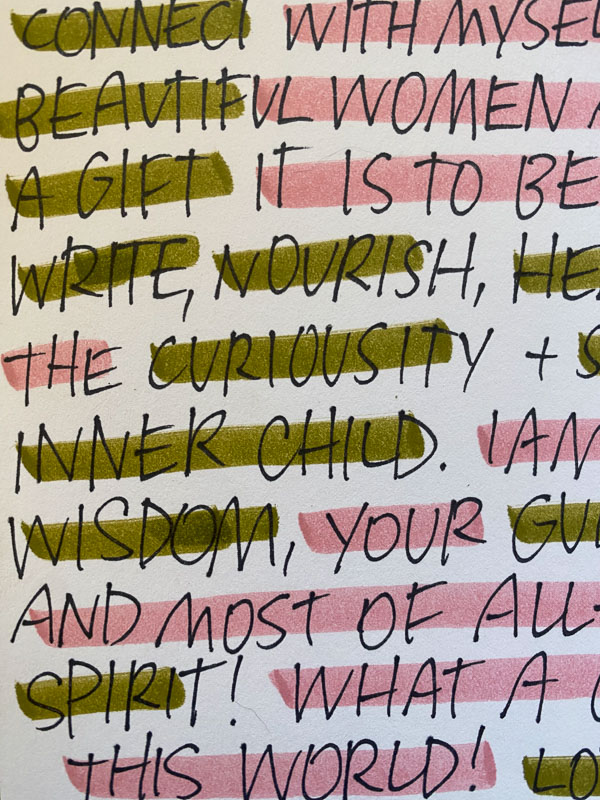 CONNECT WITH MYSEL
BEAUTIFUL WOMEN
A GIFT IT IS TO BE
WRITE, NOURISH, HEA
THE CURIOUSITY + S
INNER CHILD. I AM
WISDOM, YOUR GUI
AND MOST OF ALL-
SPIRIT! WHAT A
THIS WORLD! LO